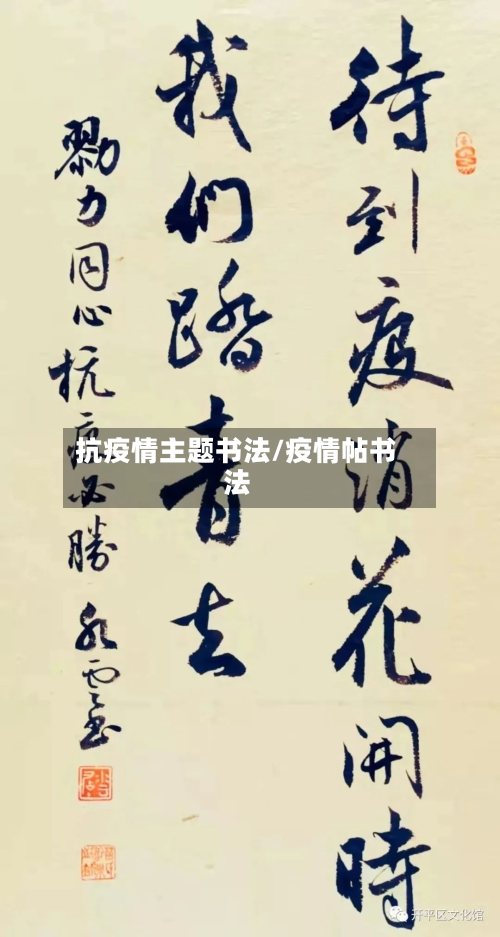 待到疫消花開時
我們踏青去
勠力同心抗疫必勝 永雲書
抗疫情主题书法/疫情帖书
法
开平区文化馆